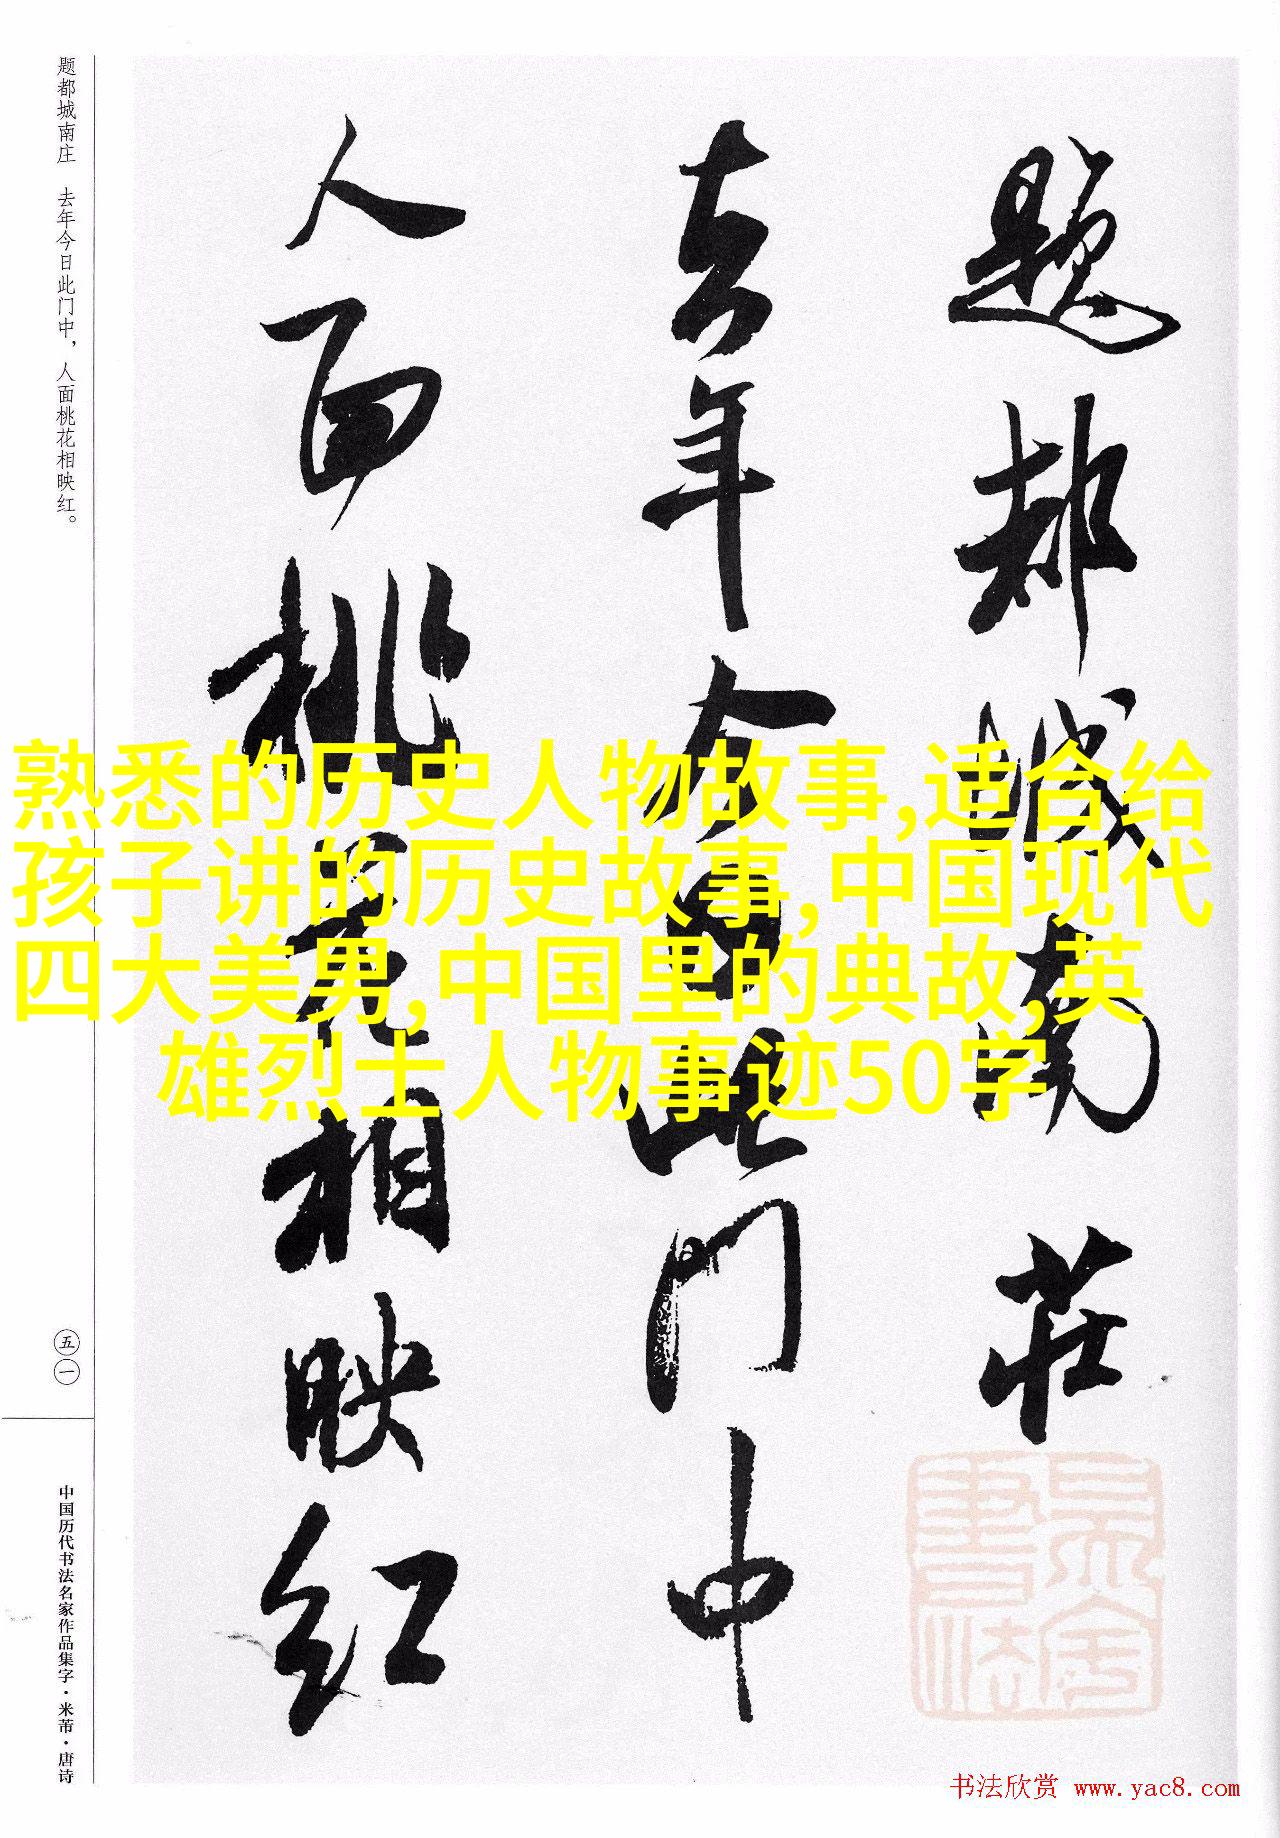 题都城南庄
去年今日此门中
人面桃花相映红
题都城南庄 去年今日此门中，人面桃花相映红。
五一
中国历代书法名家作品集字·米芾·唐诗
熟悉的历史人物故事,适合给
孩子讲的历史故事,中国现代
四大美男,中国里的典故,英
雄烈士人物事迹50字
书法欣赏 www.yac8.com